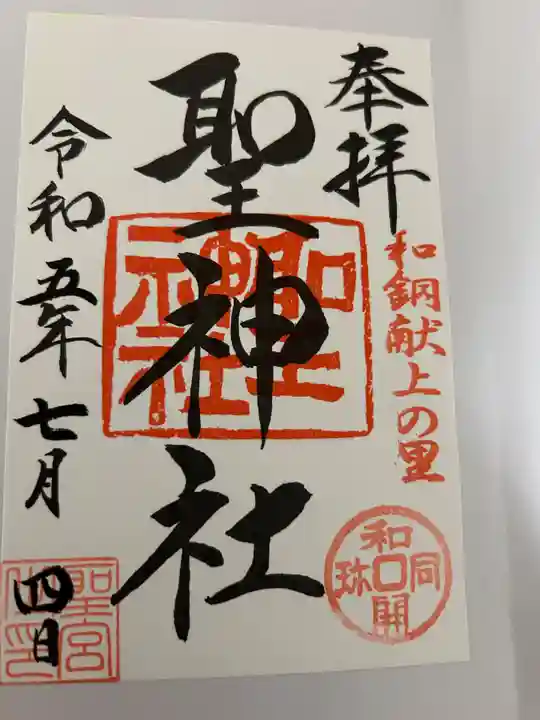 奉拝
和銅献上の里
和同開珎
聖神社
聖神社
令和五年七月
四日
聖宮